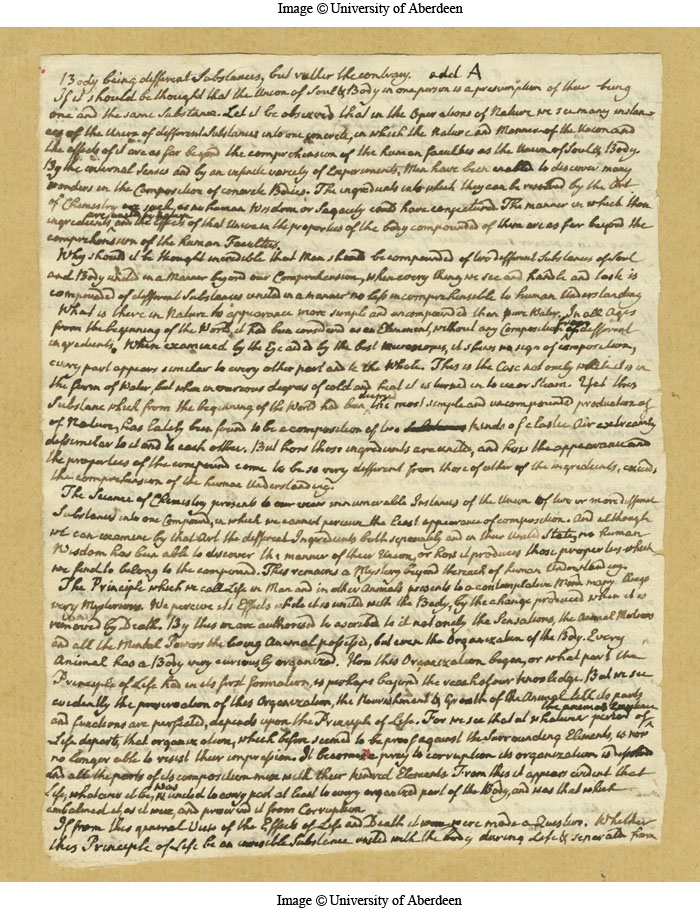 Image © University of Aberdeen
Body being different Substances, but rather the contrary. add A
If it should be thought that the Union of Soul & Body in one person is a presumption of their being
one and the same Substance. Let it be observed that in the Operations of Nature we see many instan-
ces of the Union of different Substances into one concrete, in which the Nature and Manner of the Union and
the effects of it are as far beyond the comprehension of the human faculties as the Union of Soul & Body.
By the external Senses and by an infinite variety of Experiments, Men have been enabled to discover many
wonders in the Composition of concrete Bodies. The ingredients into which they can be resolved by the Art
of Chemistry are such, as no human Wisdom or Sagacity could have conjectured. The manner in which these
ingredients are united by Nature and the effects of that Union in the properties of the body compounded of them are as far beyond the
comprehension of the human Faculties.
Why should it be thought incredible that Man should be compounded of two different Substances of Soul
and Body united in a Manner beyond our Comprehension, when every thing we see and handle and taste is
compounded of different Substances united in a manner no less incomprehensible to human Understanding
What is there in Nature to appearance more simple and uncompounded than pure Water. In all Ages
from the beginning of the World, it had been considered as an Element, without any Composition of different
ingredients. When examined by the Eye aided by the best microscopes, it shews no sign of composition,
every part appears similar to every other part and to the Whole. This is the Case not only while it is in
the form of Water, but when in various degrees of cold and heat it is turned in to ice or Steam. Yet this
Substance which from the beginning of the World had been deemed the most simple and uncompounded production of
of Nature, has lately been found to be a composition of two kinds of elastic Air extreamly
dissimilar to it and to each other. But how those ingredients are united, and how the appearance and
the properties of the compound come to be so very different from those of either of the ingredients, exceeds
the comprehension of the human Understanding.
The Science of Chemistry presents to our view innumerable Instances of the Union of two or more different
Substances into one Compound, in which we cannot perceive the least appearance of composition. And although
we can examine by that Art the different Ingredients both separately and in their United State, no human
Wisdom has been able to discover the manner of their Union, or how it produces those properties which
we find to belong to the compound. This remains a Mystery beyond the reach of human Understanding.
The Principle which we call Life in Man and in other Animals presents to a contemplative Mind many things
very Mysterious. We perceive its Effects while it is united with the Body, by the change produced when it is
removed by Death. By this we are authorised to ascribe to it not only the Sensations, the Animal Motions
and all the Mental Powers the living Animal possessed, but even the Organization of the Body. Every
Animal has a Body very curiously organized. How this Organization began, or what part the
Principle of Life had in its first formation, is perhaps beyond the reach of our knowledge. But we see
evidently the preservation of this Organization, the Nourishment & Growth of the Animal till its parts
and functions are perfected, depends upon the Principle of Life. For we see that at whatever period of the animals Existence
Life departs, that organization, which before seemed to be proof against the Surrounding Elements, is now
no longer able to resist their impression. It becomes a prey to corruption its organization is
and all the parts of its composition mix with their kindred Elements. From this it appears evident that
Life, whatever it be, was united to every part at least to every organized part of the Body, and was that which
embalmed it, as it were, and preserved it from Corruption.
If from this general View of the Effects of Life and Death it were made a Question. Whether
this Principle of Life be an invisible Substance united with the body during Life & separated from
Image © University of Aberdeen